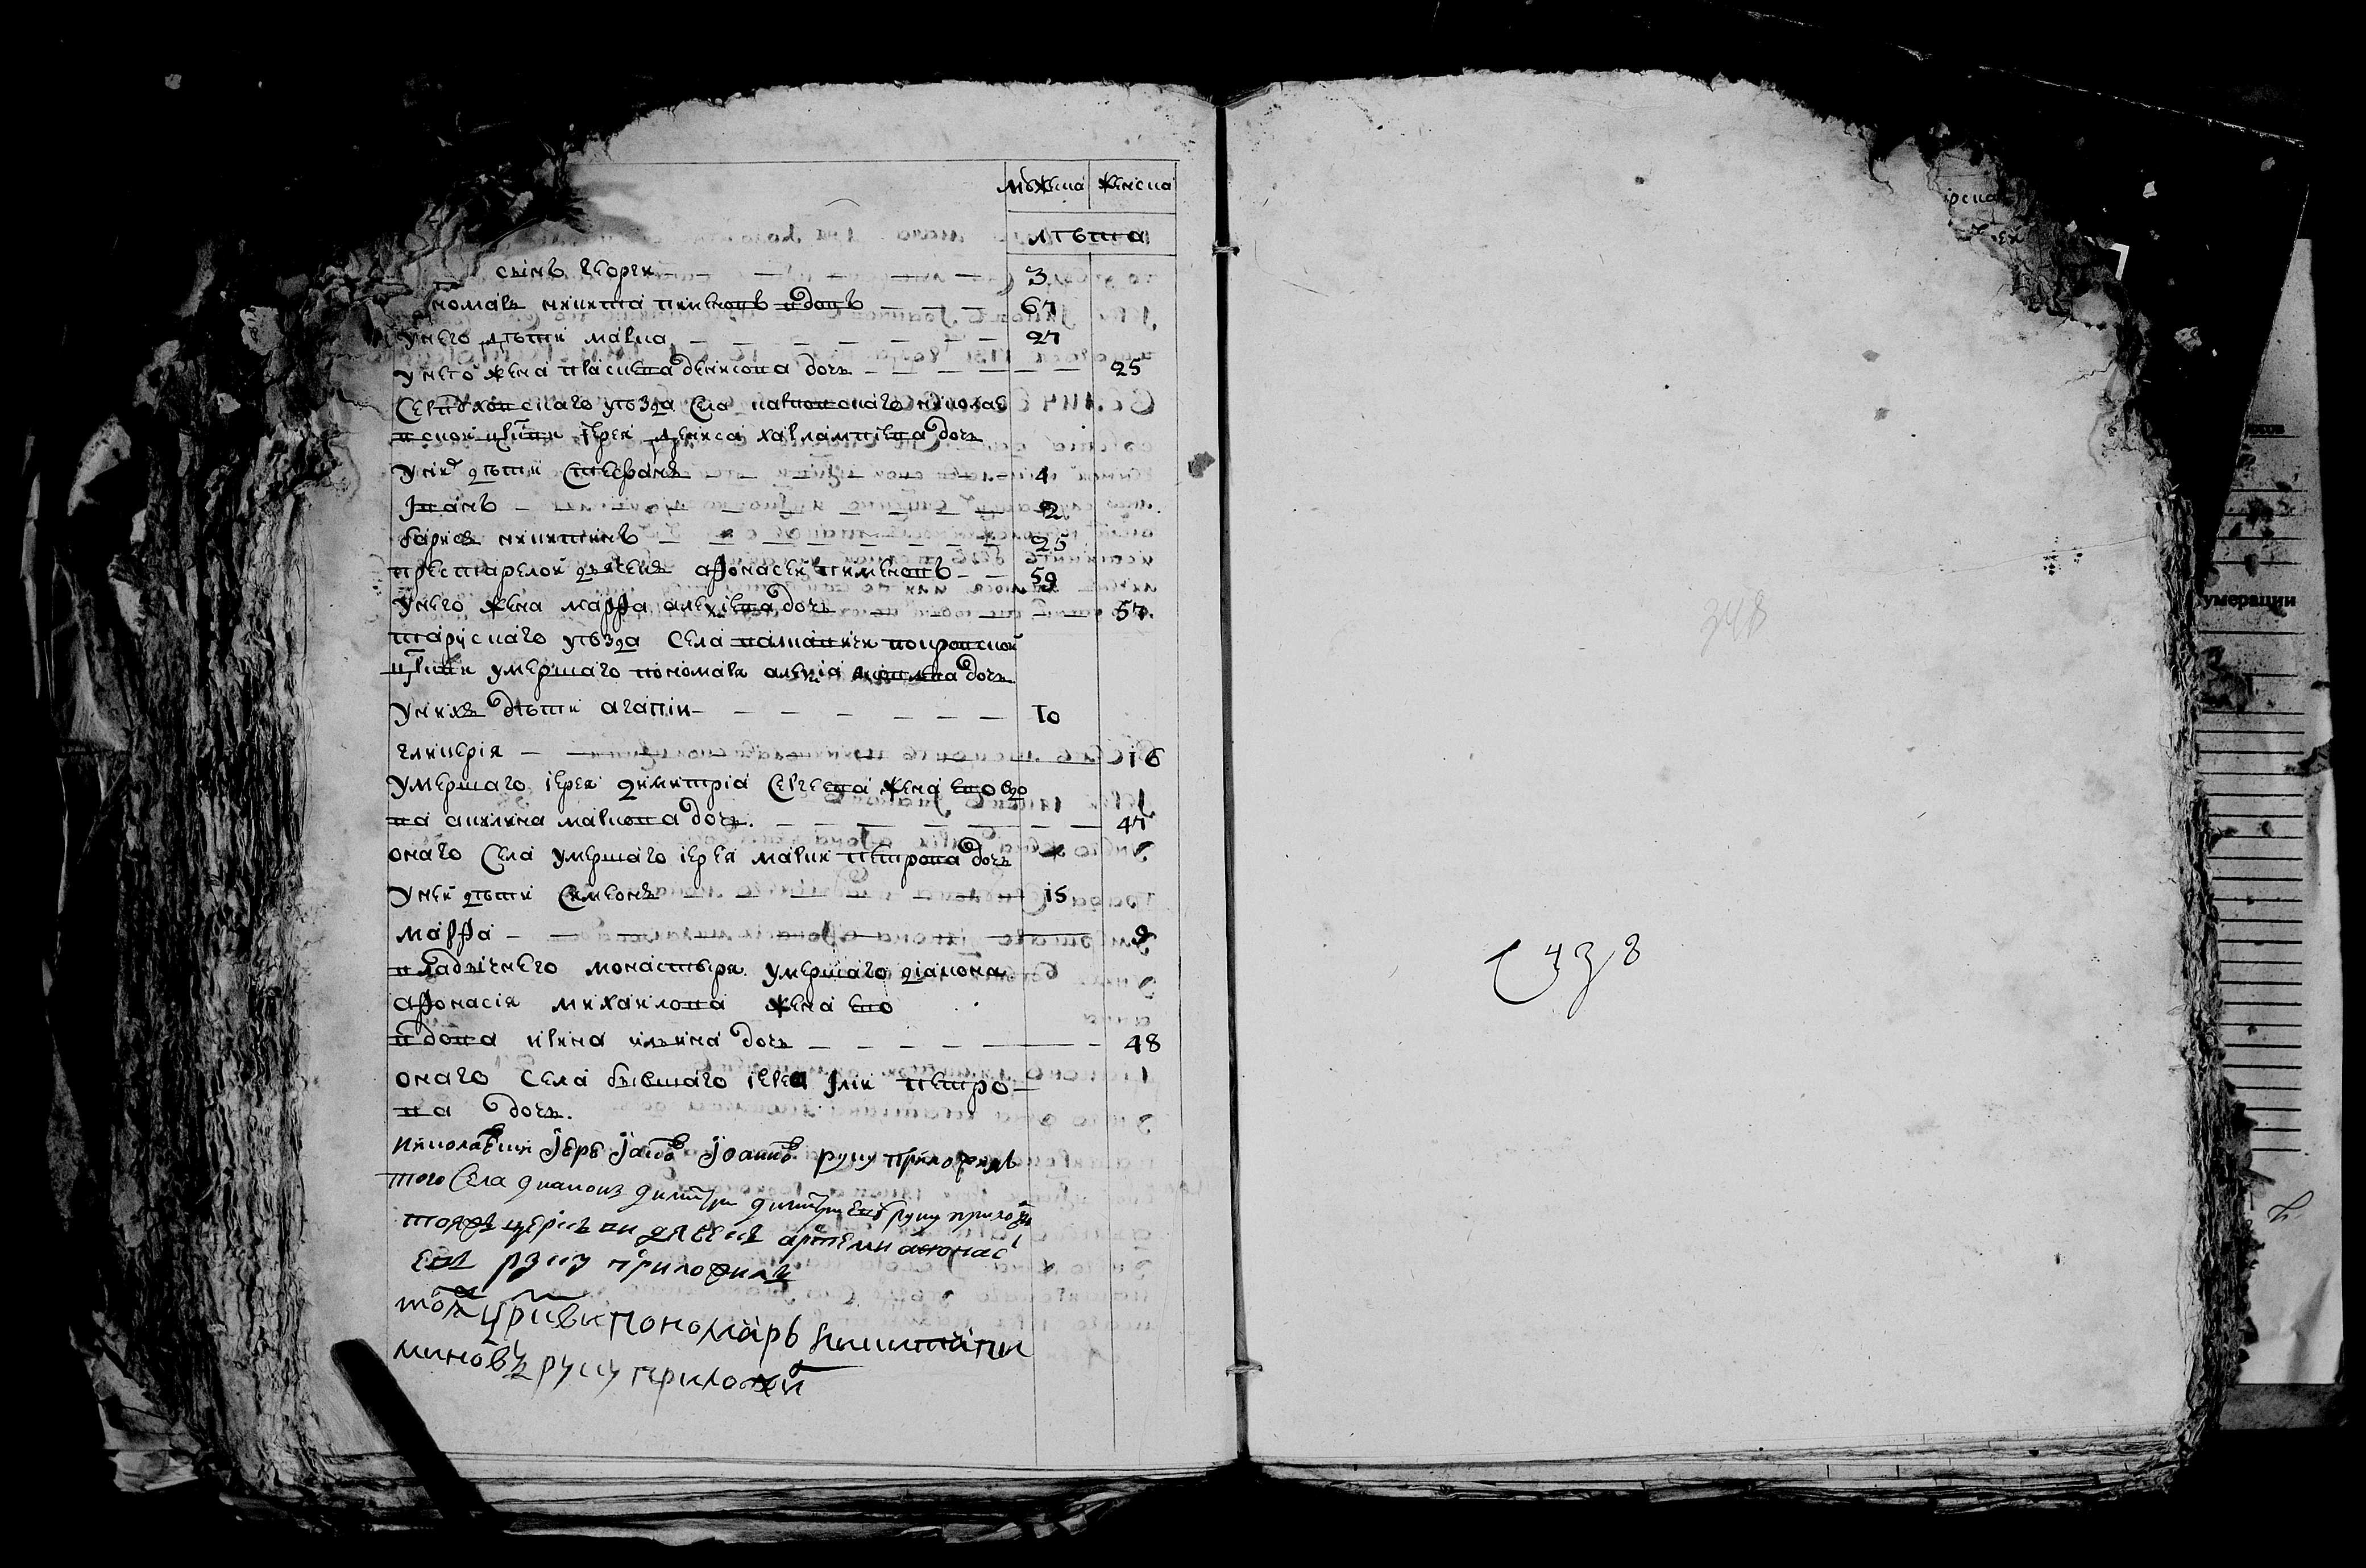 мужеска женска
лѣта
сынъ георги 3
пономарь никита пименовъ вдовъ 67
у него дѣти марка 27
у него жена прасковa денисова дочь 25
серпуховскаго уѣзда села николае
вской цркви иерея дениса харлампиева дочь
у нихъ дѣти стефанъ 4
Иванъ 2
барисъ никитинъ 25
престарелой дьячекъ афонасей пименовъ 59
у него жена марфа алексіева дочь 57
тарускаго уѣзда села покровской
цркви умершаго пономаря алексіа дочь
у нихъ дѣти агапіи 10
гликерія 16
умершаго іерея димитріа сергеева жена ево вдо
ва акилина маркова дочь 47
онаго села умершаго іерея марки петрова дочь
у ней дѣти симеонъ 15
марфа 9
владычнего монастыря умершаго діакона
афонасія михаилова жена ево
вдова ирина ильина дочь 48
онаго села бывшаго іерея Ілии петро
ва дочь.
николаевски Іере Іаковъ Іоанновъ руку приложилъ
того села диаконъ димитри димитриевъ руку приложи
тояжъ церкви дьячекъ артеми афонас
евъ руку приложилъ
тоя цркви пономарь никита пи
миновъ руку приложи
348
438
нумерации